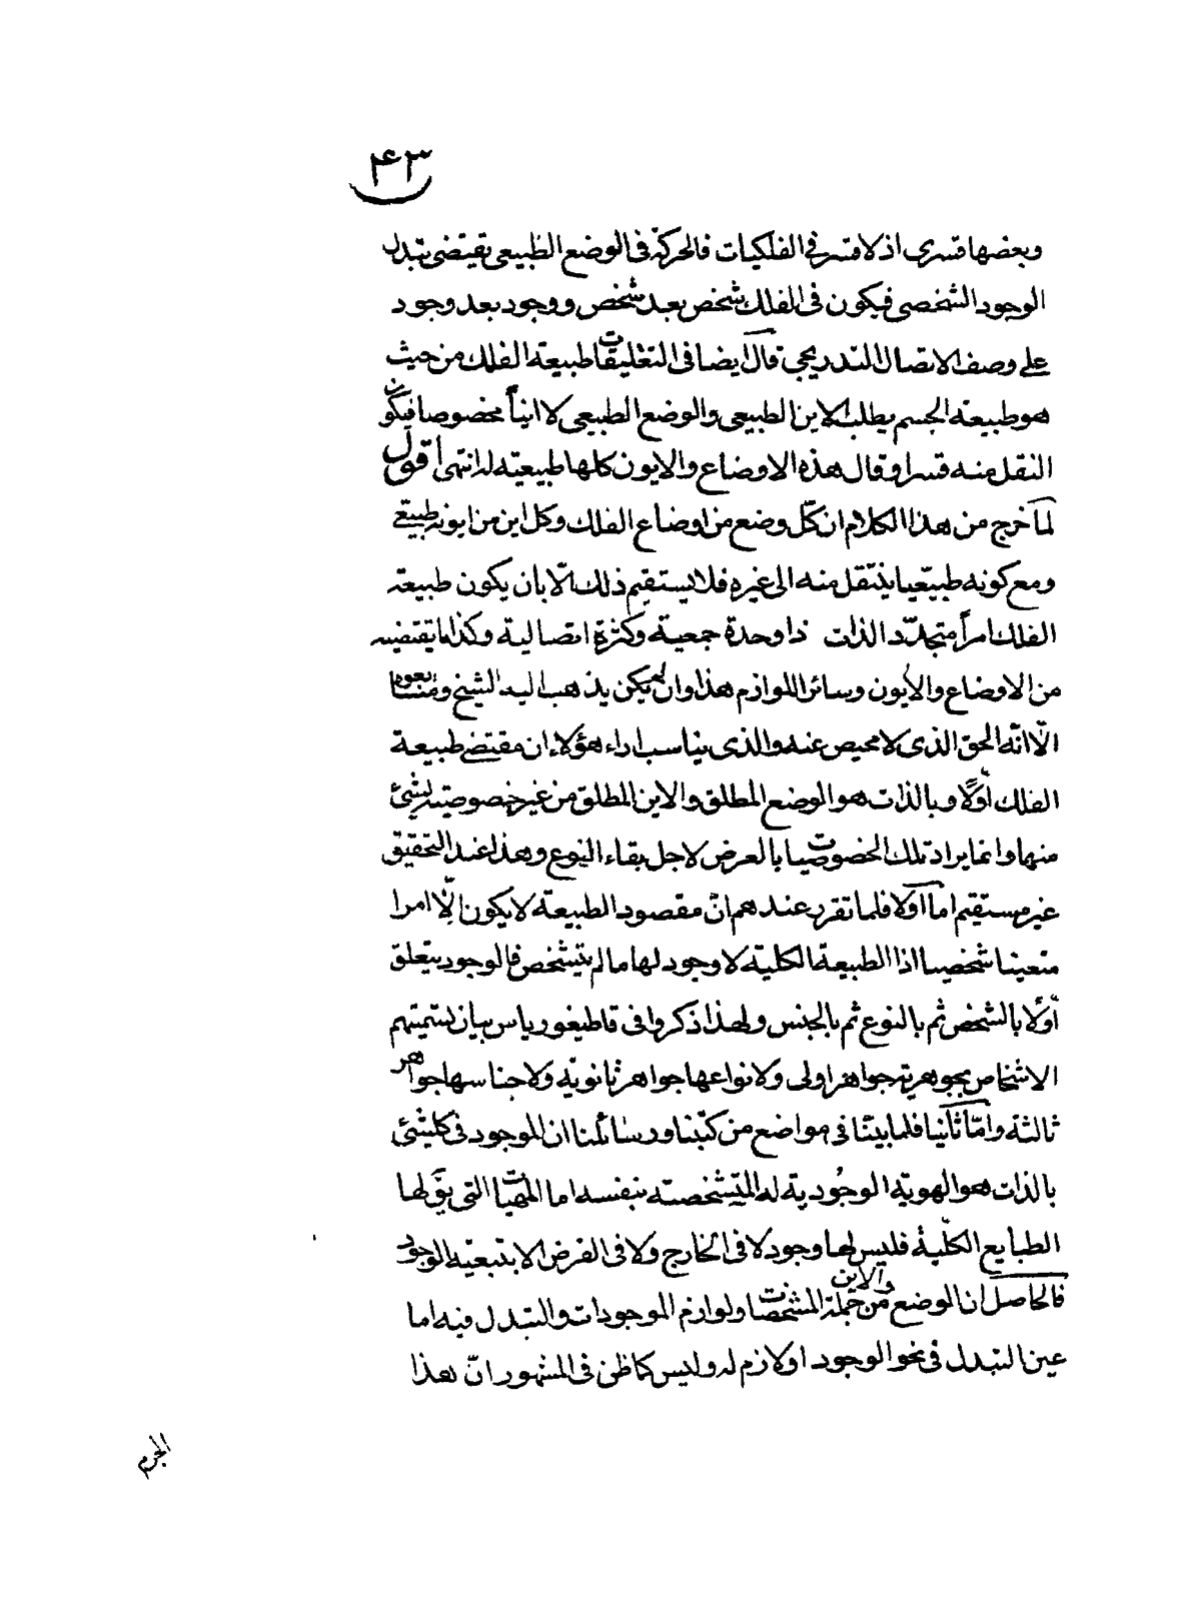 ۴۳
وبعضها قسرى اذ لا قسر فى الفلكيات فالحركة فى الوضع الطبيعى تقيتضى تبدل
الوجود الشخصى فيكون فى الفلك شخص بعد شخص ووجود بعد وجود
على وصف الاتصال التدريجى قال ايضا فى التعليقات طبيعة الفلك من حيث
هو طبيعة الجسم يطلب الاين الطبيعى والوضع الطبيعى لا ايناً مخصوصا فيكون
النقل منه قسرا وقال هذه الاوضاع والايون كلها طبيعية له انتهى اقول
لما خرج من هذا الكلام ان كلّ وضع من اوضاع الفلك وكل اين من ايونه طبيعى
ومع كونه طبيعيا ينتقل منه الى غيره فلا يستقيم ذلك الّا بان يكون طبيعة
الفلك امراً متجدّد الذات ذا وحدة جمعية وكثرة اتصالية وكذا ما يقتضيه
من الاوضاع والأيون وسائر اللوازم هذا وان لم يكن يذهب اليه الشيخ ومتابعوه
الّا انّه الحق الذى لا محيص عنه والذى يناسب اراء هؤلاء ان مقتضى طبيعة
الفلك اوّلاً وبالذات هو الوضع المطلق والاين المطلق من غير خصوصية لشئ
منها وانما يراد تلك الخصوصيات بالعرض لاجل بقاء النوع وهذا عند التحقيق
غير مستقيم اما اولا فلما تقرر عندهم انّ مقصود الطبيعة لا يكون الّا امرا
متعينا شخصيا اذا الطبيعة الكلية لا وجود لها ما لم يتشخص فالوجود يتعلق
اوّلا بالشخص ثم بالنوع ثم بالجنس ولهذا ذكروا فى قاطيغورياس بيان تسميتهم
الاشخاص بجوهرية جواهر اولى ولانواعها جواهر ثانوية ولاجناسها جواهر
ثالثة وامّا ثانيا فلما بيّنا فى مواضع من كتبنا ورسائلنا ان الموجود فى كلشئ
بالذات هو الهوية الوجُودية له المتشخصة بنفسه اما المهيات التى يقّ لها
الطبايع الكلّية فليس لها وجود لا فى الخارج ولا فى الفرض الا بتبعية الوجود
فالحاصل ان الوضع والاين من جملة المشخصات ولوازم الموجودات والتبدل فيه اما
عين التبدل فى نحو الوجود او لازم له وليس كما ظن فى المشهور انّ هذا
الجرم